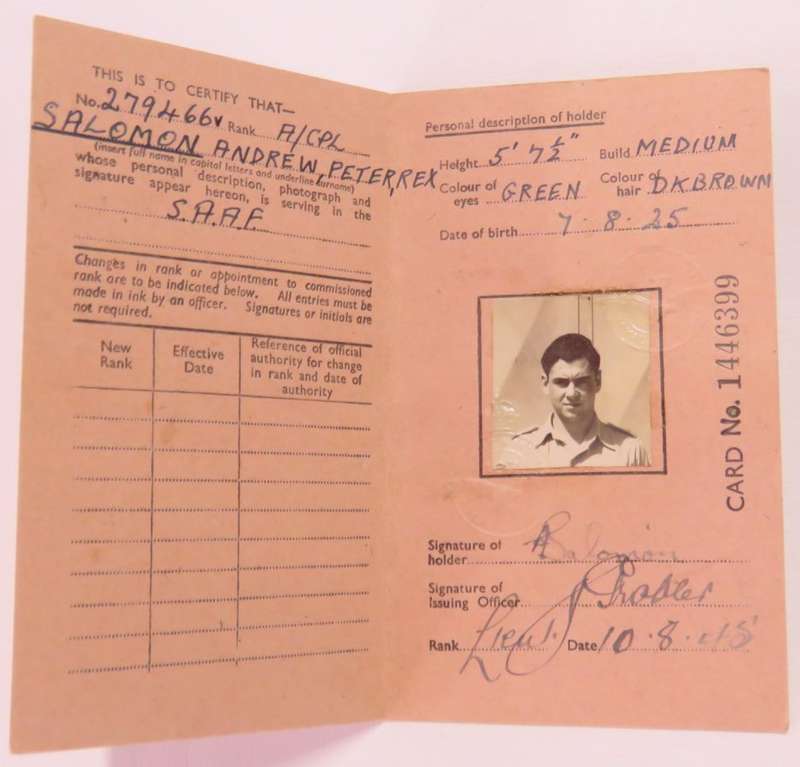 THIS IS TO CERTIFY THAT—
No. 279466V Rank A/CPL
SALOMON ANDREW, PETER, REX
(Insert full name in capital letters and underline surname)
whose personal description, photograph and
signature appear hereon, is serving in the
S.A.A.F.
Changes in rank or appointment to commissioned
rank are to be indicated below. All entries must be
made in ink by an officer. Signatures or initials are
not required.
New Rank
Effective Date
Reference of official authority for change in rank and date of authority
Personal description of holder
Height 5' 7½" Build MEDIUM
Colour of eyes GREEN Colour of hair DK BROWN
Date of birth 7.8.25
CARD No. 1446399
Signature of holder A Salomon
Signature of Issuing Officer
Rank Lieut. Date 10.8.45